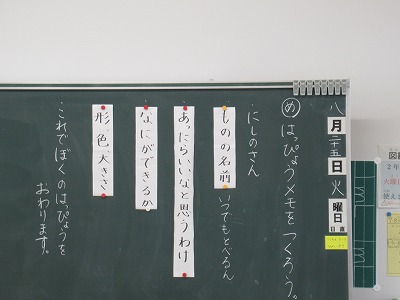 八月二十五日火曜日
日直
め はっぴょうメモをつくろう。
にしのさん
ものの名前 いつでもとべるん
・あったらいいなと思うわけ
・なにができるか
・形、色、大きさ
・これでぼくのはぴょうを
おわります。